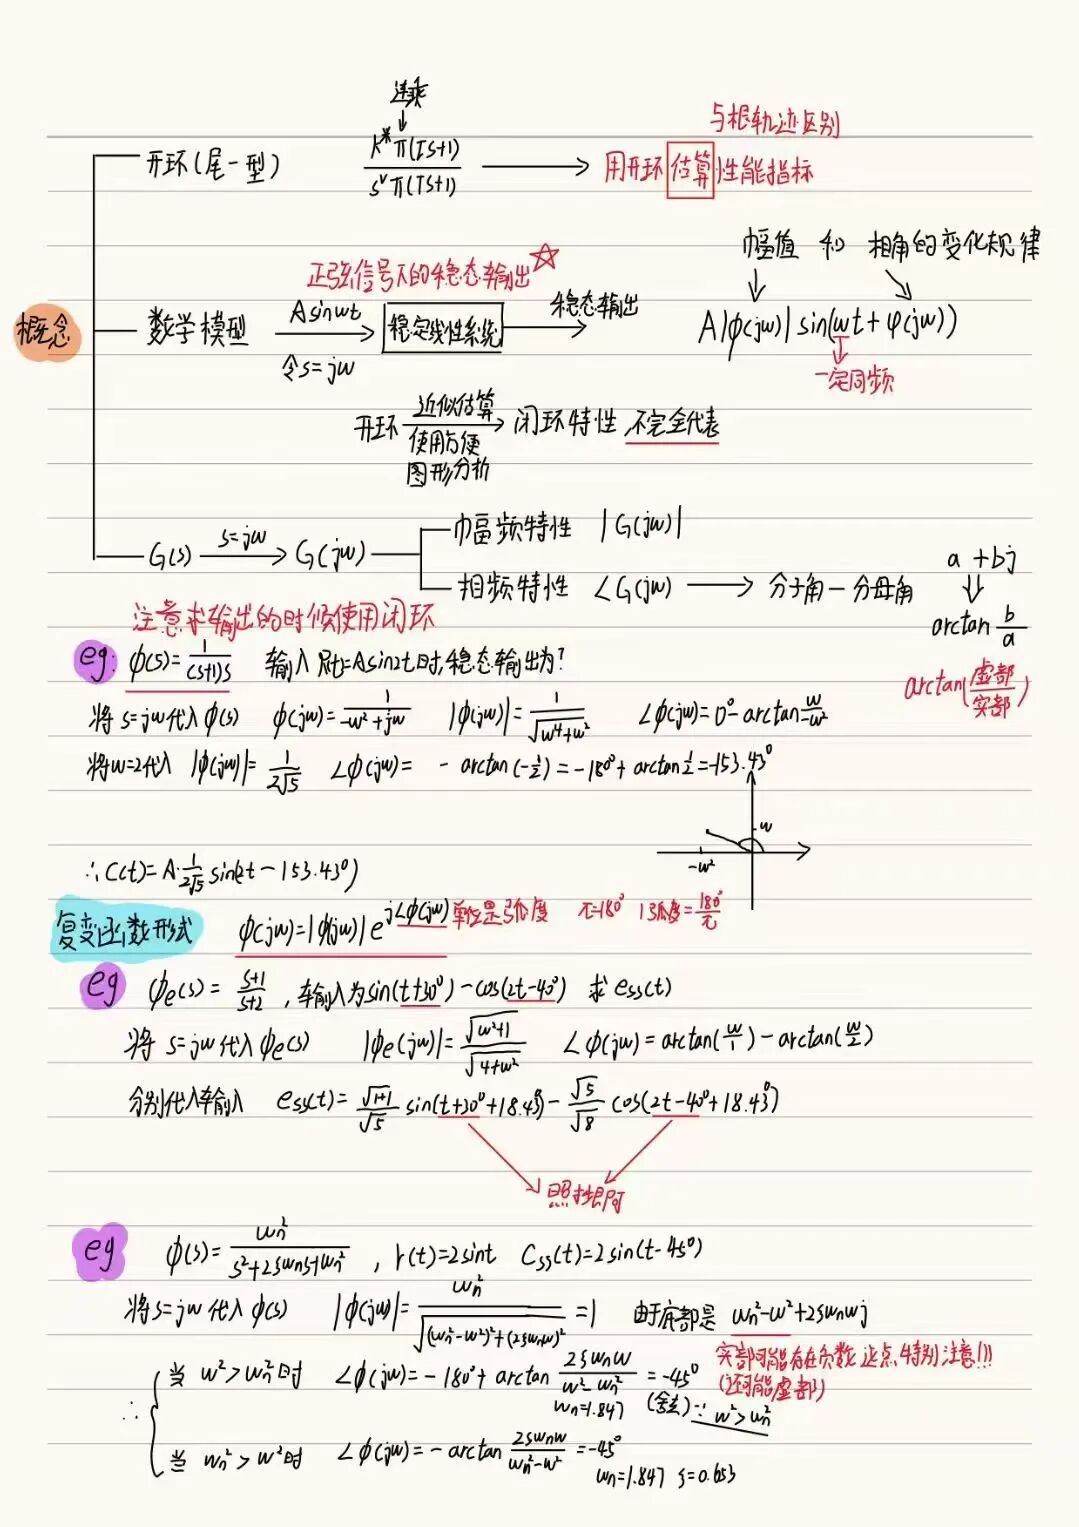 连乘
与根轨迹区别
开环(尾一型) K*π(τs+1) / s^v π(Ts+1) → 用开环估算性能指标
幅值 和 相角的变化规律
正弦信号下的稳态输出☆
概念 数学模型 Asinwt 令s=jw → 稳定线性系统 稳态输出 → A|ϕ(jw)|sin(wt+φ(jw))
一定同频
开环 近似估算 → 闭环特性,不完全代表
使用方便
图形分析
G(s) s=jw → G(jw) 幅频特性 |G(jw)|
相频特性 ∠G(jw) → 分子角-分母角
a+bj
⇓
arctan b/a
arctan(虚部/实部)
注意求输出的时候使用闭环
eg: ϕ(s)=1/(s+1)s 输入R(t)=Asin2t时,稳态输出为?
将s=jw代入ϕ(s) ϕ(jw)=1/-w²+jw |ϕ(jw)|=1/√w⁴+w² ∠ϕ(jw)=0°-arctan w/-w²
将w=2代入 |ϕ(jw)|=1/2√5 ∠ϕ(jw)= -arctan(-1/2)=-180°+arctan1/2=-153.43°
w
-w²
∴C(t)=A·1/2√5 sin(2t-153.43°)
复变函数形式 ϕ(jw)=|ϕ(jw)|e^j∠ϕ(jw) 单位是弧度 π=180° 1弧度=180°/π
eg ϕe(s)=s+1/s+2,输入为sin(t+30°)-cos(2t-40°) 求ess(t)
将s=jw代入ϕe(s) |ϕe(jw)|=√w²+1/√4+w² ∠ϕ(jw)=arctan(w/1)-arctan(w/2)
分别代入输入 ess(t)=√1+1/√5 sin(t+30°+18.43°)-√5/√8 cos(2t-40°+18.43°)
照抄即可
eg ϕ(s)=wn²/s²+2ζwns+wn²,r(t)=2sint Css(t)=2sin(t-45°)
将s=jw代入ϕ(s) |ϕ(jw)|=wn²/√(wn²-w²)²+(2ζwnw)²=1 由于底部是 wn²-w²+2ζwnwj
实部可能存在负数 这点特别注意!!!
(还可能虚部)
∴ 当w²>wn²时 ∠ϕ(jw)=-180°+arctan 2ζwnw/w²-wn²=-45°
wn=1.847 (舍去)∵w²>wn²
当wn²>w²时 ∠ϕ(jw)=-arctan 2ζwnw/wn²-w²=-45°
wn=1.847 ζ=0.653